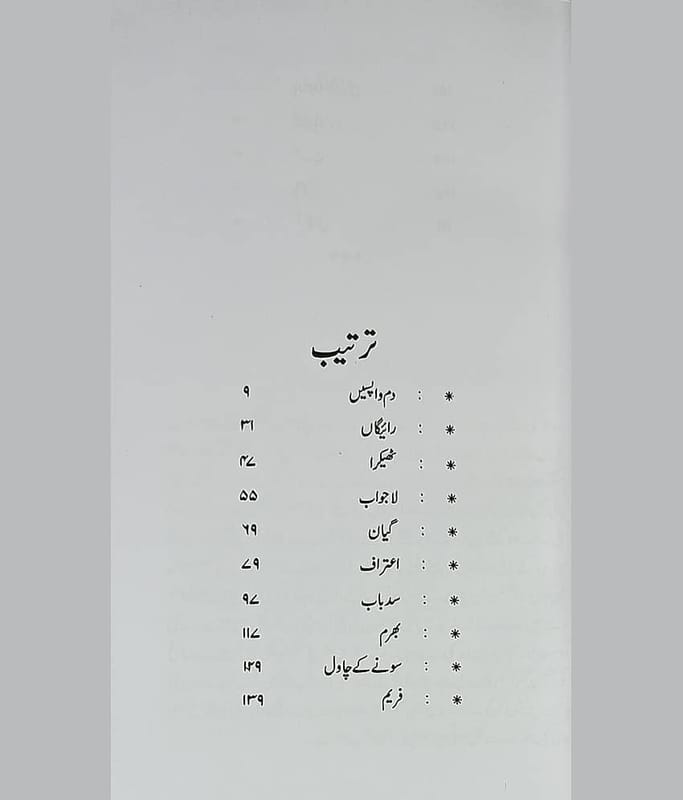 ترتیب
* : دم واپسیں ۹
* : رائیگاں ۳۱
* : ٹھیکرا ۴۷
* : لاجواب ۵۵
* : گیان ۶۹
* : اعتراف ۷۹
* : سدباب ۹۷
* : بھرم ۱۱۷
* : سونے کے چاول ۱۲۹
* : فریم ۱۳۹